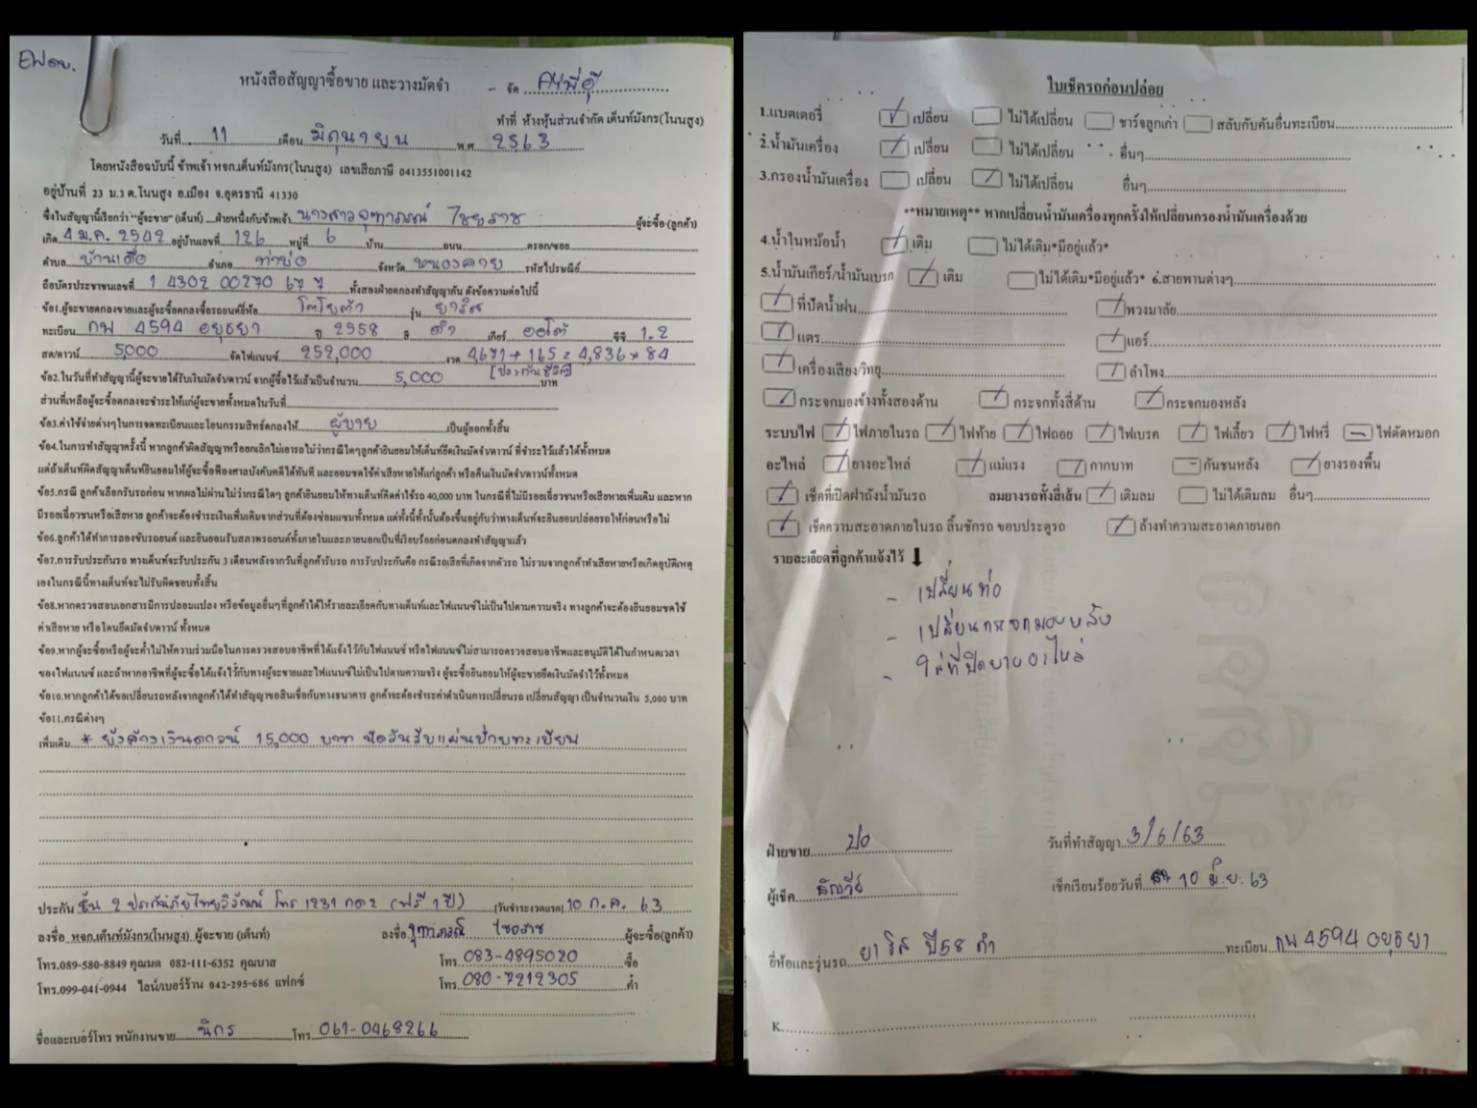 หนังสือสัญญาซื้อขาย และวางมัดจำ
- จัด
ทำที่ ห้างหุ้นส่วนจำกัด เต็นท์มังกร(โนนสูง)
วันที่ 11 เดือน มิถุนายน พ.ศ. 2563
โดยหนังสือฉบับนี้ ข้าพเจ้า หจก.เต็นท์มังกร(โนนสูง) เลขเสียภาษี 0413551001142
อยู่บ้านที่ 23 ม.3 ต.โนนสูง อ.เมือง จ.อุดรธานี 41330
ซึ่งในสัญญานี้เรียกว่า "ผู้จะขาย" (เต็นท์) ฝ่ายหนึ่งกับข้าพเจ้า นางสาวจุฑาภรณ์ ไชยราช ผู้จะซื้อ(ลูกค้า)
เกิด 4 ม.ค. 2542 อยู่บ้านเลขที่ 126 หมู่ที่ 6 บ้าน ถนน ตรอก/ซอย
ตำบล บ้านเดื่อ อำเภอ ท่าบ่อ จังหวัด หนองคาย รหัสไปรษณีย์
ถือบัตรประชาชนเลขที่ 1 4302 00270 67 7 ทั้งสองฝ่ายตกลงทำสัญญากัน ดังข้อความต่อไปนี้
ข้อ1.ผู้จะขายตกลงขายและผู้จะซื้อตกลงซื้อรถยนต์ยี่ห้อ โตโยต้า รุ่น ยาริส
ทะเบียน กพ 4594 อยุธยา ปี 2558 สี ดำ เกียร์ ออโต้ ซีซี 1.2
สด/ดาวน์ 5,000 จัดไฟแนนซ์ 259,000 งวด 4,671+165=4,836×84
ข้อ2.ในวันที่ทำสัญญานี้ผู้จะขายได้รับเงินมัดจำ/ดาวน์ จากผู้ซื้อไว้แล้วเป็นจำนวน 5,000 บาท
ส่วนที่เหลือผู้จะซื้อตกลงจะชำระให้แก่ผู้จะขายทั้งหมดในวันที่
ข้อ3.ค่าใช้จ่ายต่างๆในการจดทะเบียนและโอนกรรมสิทธิ์ตกลงให้ ผู้ขาย เป็นผู้ออกทั้งสิ้น
ข้อ4.ในการทำสัญญาครั้งนี้ หากลูกค้าผิดสัญญาหรือยกเลิกไม่เอารถ ไม่ว่ากรณีใดๆ ลูกค้ายินยอมให้เต็นท์ยึดเงินมัดจำ/ดาวน์ ที่ชำระไว้แล้วได้ทั้งหมด
แต่ถ้าเต็นท์ผิดสัญญาเต็นท์ยินยอมให้ผู้จะซื้อฟ้องศาลบังคับคดีได้ทันที และยอมชดใช้ค่าเสียหายให้แก่ลูกค้า หรือคืนเงินมัดจำ/ดาวน์ทั้งหมด
ข้อ5.กรณี ลูกค้าเลือกรับรถก่อน หากผลไม่ผ่านไม่ว่ากรณีใดๆ ลูกค้ายินยอมให้ทางเต็นท์คิดค่าใช้รถ 40,000 บาท ในกรณีที่ไม่มีรอยเฉี่ยวชนหรือเสียหายเพิ่มเติม และหาก
มีรอยเฉี่ยวชนหรือเสียหาย ลูกค้าจะต้องชำระเงินเพิ่มเติมจากส่วนที่ต้องซ่อมแซมทั้งหมด แต่ทั้งนี้ทั้งนั้นต้องขึ้นอยู่กับว่าทางเต็นท์จะยินยอมปล่อยรถให้ก่อนหรือไม่
ข้อ6.ลูกค้าได้ทำการลองขับรถยนต์ และยินยอมรับสภาพรถยนต์ทั้งภายในและภายนอกเป็นที่เรียบร้อยก่อนตกลงทำสัญญาแล้ว
ข้อ7.การรับประกันรถ ทางเต็นท์จะรับประกัน 3 เดือนหลังจากวันที่ลูกค้ารับรถ การรับประกันคือ กรณีรถเสียที่เกิดจากตัวรถ ไม่รวมจากลูกค้าทำเสียหายหรือเกิดอุบัติเหตุ
เองในกรณีนี้ทางเต็นท์จะไม่รับผิดชอบทั้งสิ้น
ข้อ8.หากตรวจสอบเอกสารมีการปลอมแปลง หรือข้อมูลอื่นๆที่ลูกค้าได้ให้รายละเอียดกับทางเต็นท์และไฟแนนซ์ไม่เป็นไปตามความจริง ทางลูกค้าจะต้องยินยอมชดใช้
ค่าเสียหาย หรือโดนยึดมัดจำ/ดาวน์ ทั้งหมด
ข้อ9.หากผู้จะซื้อหรือผู้จะค้ำไม่ให้ความร่วมมือในการตรวจสอบอาชีพที่ได้แจ้งไว้กับไฟแนนซ์ หรือไฟแนนซ์ไม่สามารถตรวจสอบอาชีพและอนุมัติได้ในกำหนดเวลา
ของไฟแนนซ์ และถ้าหากอาชีพที่ผู้จะซื้อได้แจ้งไว้กับทางผู้จะขายและไฟแนนซ์ไม่เป็นไปตามความจริง ผู้จะซื้อยินยอมให้ผู้จะขายยึดเงินมัดจำไว้ทั้งหมด
ข้อ10.หากลูกค้าได้ขอเปลี่ยนรถหลังจากลูกค้าได้ทำสัญญาขอสินเชื่อกับทางธนาคาร ลูกค้าจะต้องชำระค่าดำเนินการเปลี่ยนรถ เปลี่ยนสัญญา เป็นจำนวนเงิน 5,000 บาท
ข้อ11.กรณีต่างๆ
เพิ่มเติม * ยังค้างเงินดาวน์ 15,000 บาท นัดวันรับแผ่นป้ายทะเบียน
ประกัน ชั้น 2 ประกันภัยไทยวิวัฒน์ โทร 1231 กด 2 (ฟรี 1 ปี) (วันชำระงวดแรก) 10 ก.ค. 63
ลงชื่อ หจก.เต็นท์มังกร(โนนสูง) ผู้จะขาย (เต็นท์) ลงชื่อ จุฑาภรณ์ ไชยราช ผู้จะซื้อ(ลูกค้า)
โทร.089-580-8849 คุณมด 082-111-6352 คุณบาส โทร. 083-4895020 ซื้อ
โทร.099-041-0944 ไลน์/เบอร์ร้าน 042-295-686 แฟกซ์ โทร. 080-7212305 ค้ำ
ชื่อและเบอร์โทร พนักงานขาย นิกร โทร 061-0468266
ใบเช็ครถก่อนปล่อย
1.แบตเตอรี่ เปลี่ยน ไม่ได้เปลี่ยน ชาร์จลูกเก่า สลับกับคันอื่นทะเบียน
2.น้ำมันเครื่อง เปลี่ยน ไม่ได้เปลี่ยน อื่นๆ
3.กรองน้ำมันเครื่อง เปลี่ยน ไม่ได้เปลี่ยน อื่นๆ
**หมายเหตุ** หากเปลี่ยนน้ำมันเครื่องทุกครั้งให้เปลี่ยนกรองน้ำมันเครื่องด้วย
4.น้ำในหม้อน้ำ เติม ไม่ได้เติม*มีอยู่แล้ว*
5.น้ำมันเกียร์/น้ำมันเบรก เติม ไม่ได้เติม*มีอยู่แล้ว* 6.สายพานต่างๆ
ที่ปัดน้ำฝน พวงมาลัย
แตร แอร์
เครื่องเสียง/วิทยุ ลำโพง
กระจกมองข้างทั้งสองด้าน กระจกทั้งสี่ด้าน กระจกมองหลัง
ระบบไฟ ไฟภายในรถ ไฟท้าย ไฟถอย ไฟเบรค ไฟเลี้ยว ไฟหรี่ ไฟตัดหมอก
อะไหล่ ยางอะไหล่ แม่แรง กากบาท กันชนหลัง ยางรองพื้น
เช็คที่เปิดฝาถังน้ำมันรถ ลมยางรถทั้งสี่เส้น เติมลม ไม่ได้เติมลม อื่นๆ
เช็คความสะอาดภายในรถ ลิ้นชักรถ ขอบประตูรถ ล้างทำความสะอาดภายนอก
รายละเอียดที่ลูกค้าแจ้งไว้
- เปลี่ยนท่อ
- เปลี่ยนกระจกมองหลัง
- ใส่ที่ปิดยางอะไหล่
ฝ่ายขาย ปอ วันที่ทำสัญญา 3/6/63
ผู้เช็ค เช็คเรียบร้อยวันที่ 10 มิ.ย. 63
ยี่ห้อและรุ่นรถ ยาริส ปี58 ดำ ทะเบียน กพ 4594 อยุธยา
K